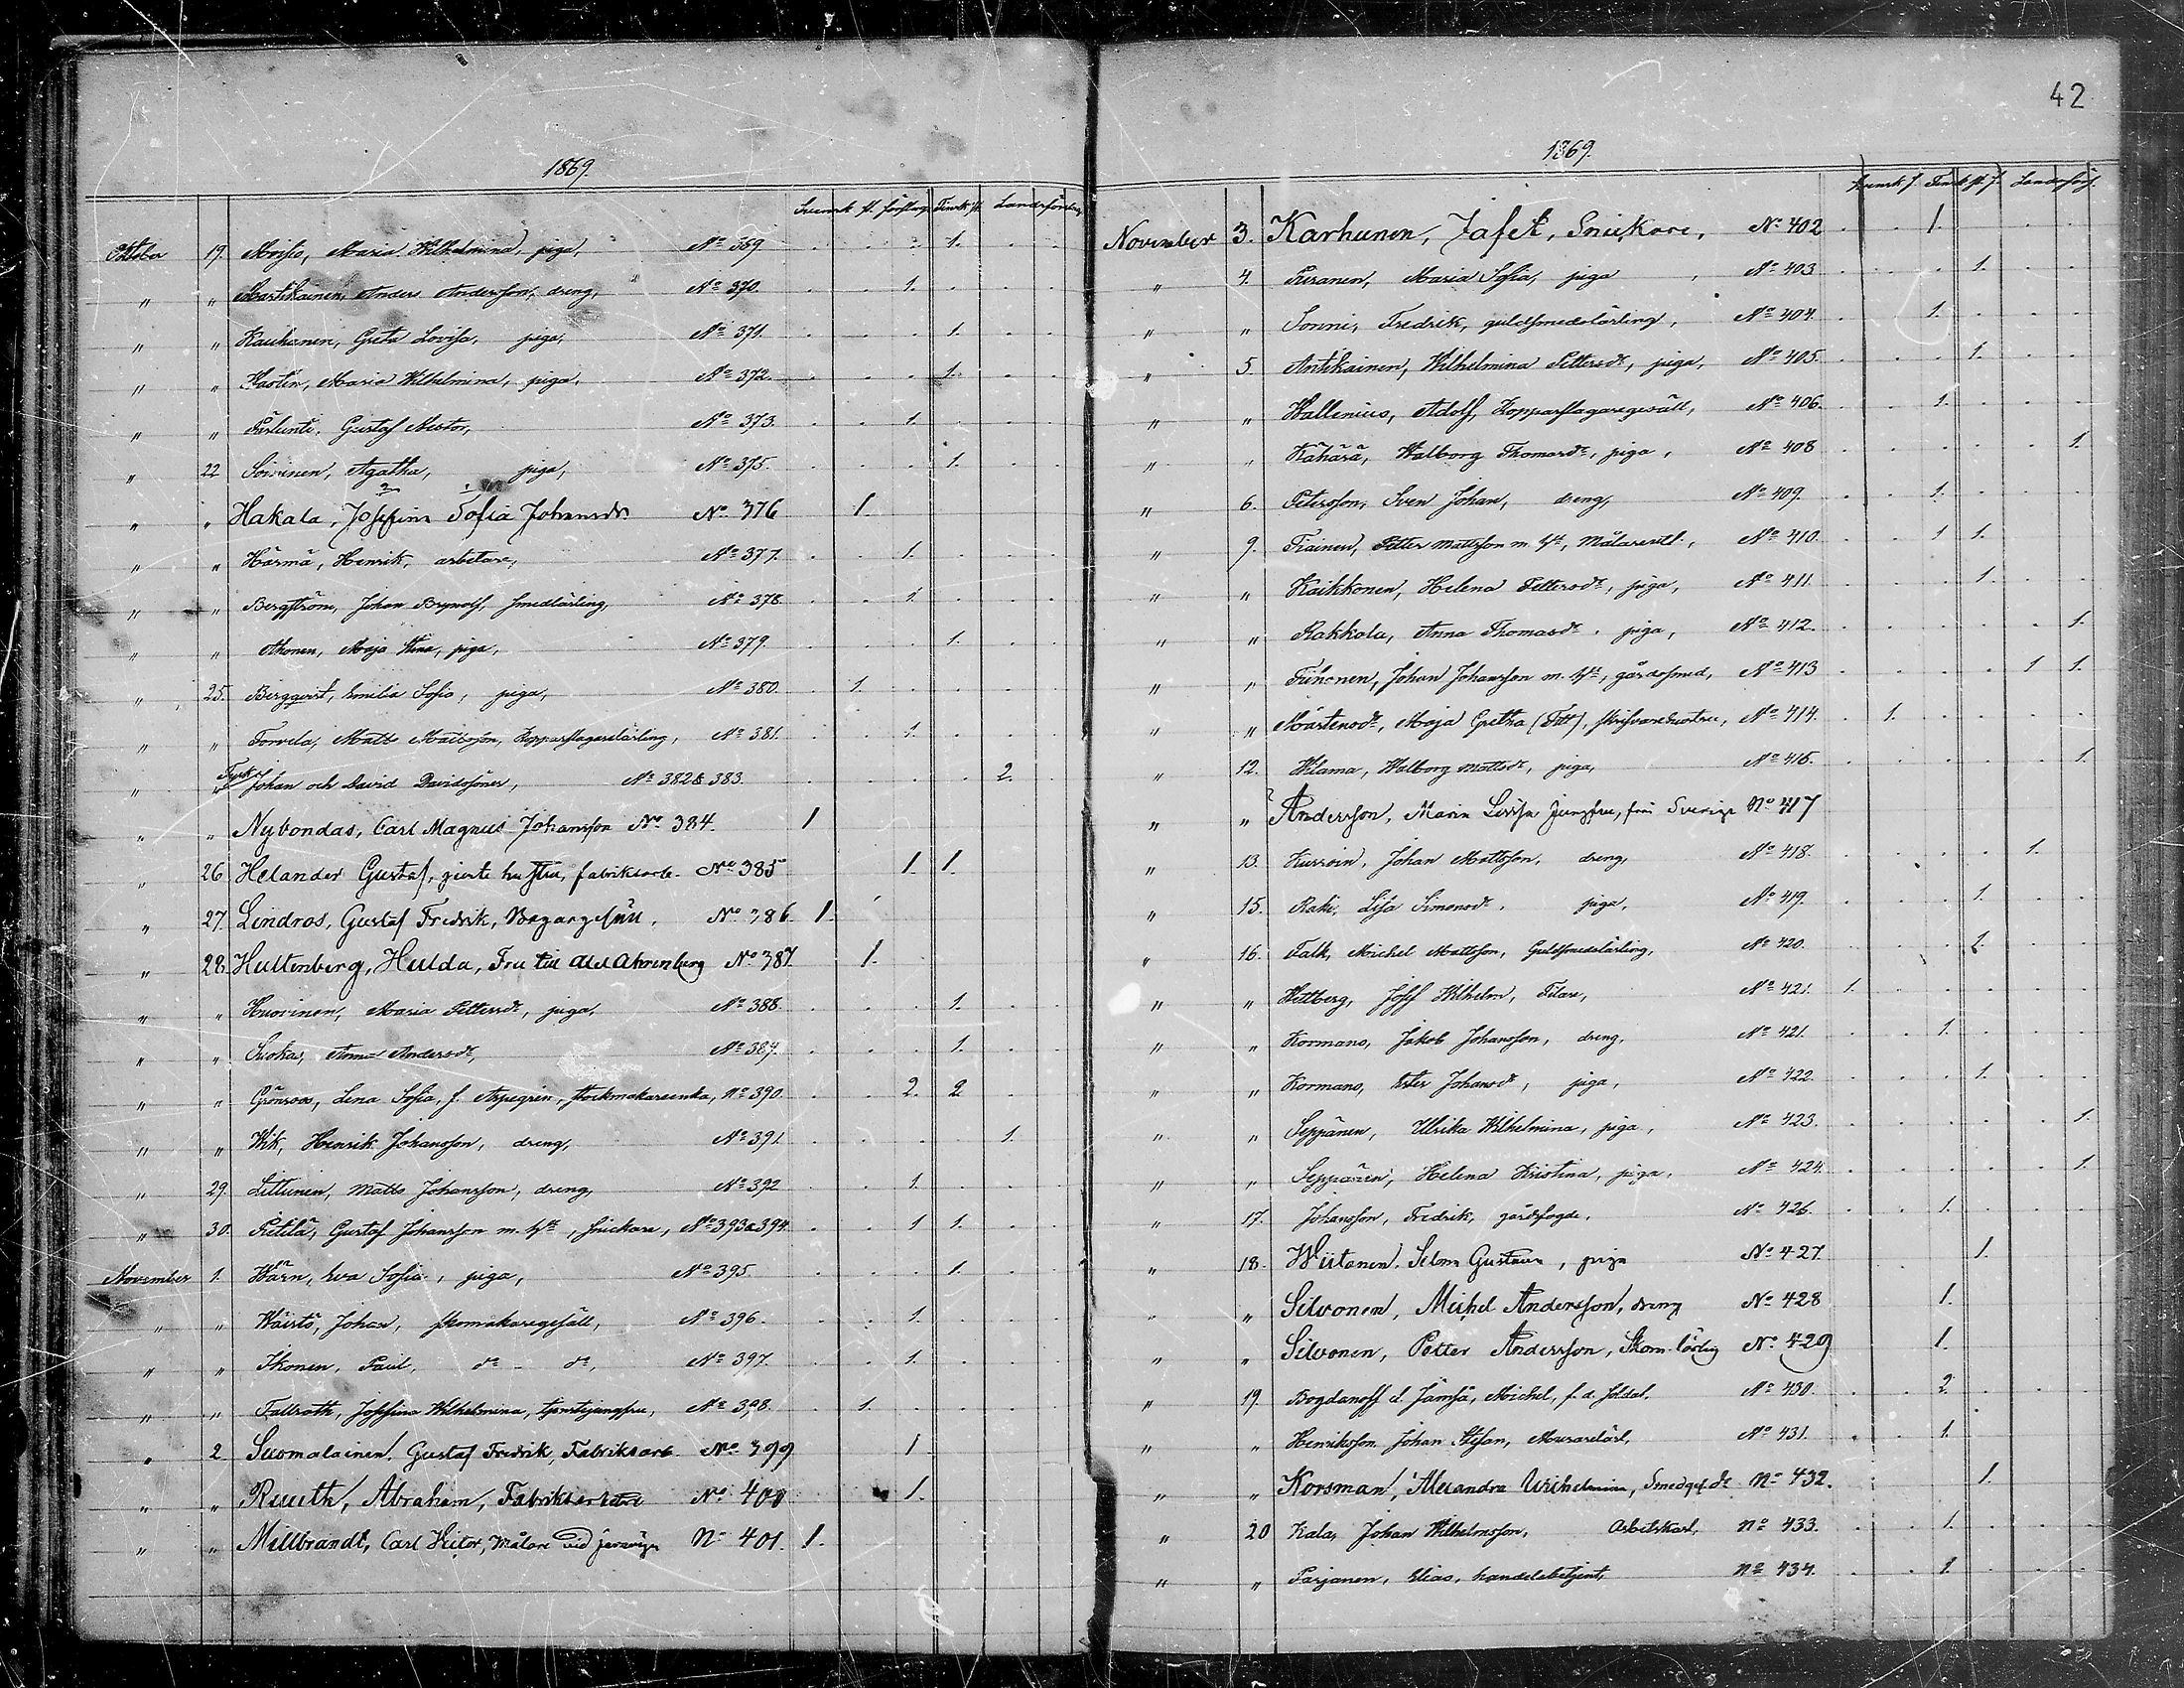 42
1869.
Svensk st. försling Finsk st. Landsförsling
Oktober 19. Moisio, Maria Wilhelmina, piga, No 369 1.
" " Martikainen, Anders Andersson, dreng, No 370. 1.
" " Kauhanen, Greta Lovisa, piga, No 371. 1.
" " Hastén, Maria Wilhelmina, piga, No 372. 1.
" " Gustaf Nestor, No 373. 1.
" 22 Soininen, Agatha, piga, No 375. 1.
" " Hakala, Josefina Sofia Johansdr No 376 1.
" " Härmä, Henrik, arbetare, No 377. 1.
" " Bergström, Johan Brynolf, smedlärling, No 378 1.
" " Ahonen, Maja Stina, piga, No 379. 1.
" 25. Bergqvist, Emilia Sofia, piga, No 380. 1.
" " Torvela, Matts Mattsson, Kopparslagarelärling, No 381. 1.
" " Johan och David Davidssöner, No 382 & 383. 2.
" " Nybondas, Carl Magnus Johansson No 384. 1
" 26 Helander Gustaf, jemte hustru, fabriksarb. No 385 1. 1.
" 27. Lindros, Gustaf Fredrik, Bagargesäll, No 386. 1.
" 28. Hultenberg, Hulda, Fru till Ahrenberg No 387. 1.
" " Huovinen, Maria Pettersdr, piga, No 388. 1.
" " Suoka, Anna Andersdr, No 389. 1.
" " Grönroos, Lena Sofia, f. Aspegrén, stockmakareenka, No 390. 2. 2
" " Wik, Henrik Johansson, dreng, No 391. 1.
" 29. Littunen, Matts Johansson, dreng, No 392 1.
" 30. Pietilä, Gustaf Johansson m. hst, snickare, No 393 a 394. 1 1.
November 1. Wärn, Eva Sofia, piga, No 395. 1.
" " Wäistö, Johan, skomakaregesäll, No 396. 1.
" " Ikonen, Paul, do - do, No 397. 1.
" " Fallroth, Josefina Wilhelmina, tjenstejungfru, No 398. 1.
" 2 Suomalainen, Gustaf Fredrik, Fabriksarb. No 399 1
" " Ruuth, Abraham, Fabriksarbetare No 400 1.
" " Millbrandt, Carl Victor, målare vid jernvägen No 401. 1.
1869.
Svensk f. Finsk st. f. Landsförs.
November 3. Karhunen, Jafet, Snickare, No 402 1.
" 4. Puranen, Maria Sofia, piga, No 403 1.
" " Sonni, Fredrik, guldsmedslärling, No 404. 1.
" 5 Antikainen, Wilhelmina Pettersdr, piga, No 405. 1.
" " Wallenius, Adolf, Kopparslagaregesäll, No 406. 1.
" " Kähärä, Walborg Thomasdr, piga, No 408 1.
" 6. Petersson, Sven Johan, dreng, No 409. 1.
" 9. Tiainen, Petter Mattsson m. hst, Målaresäll., No 410. 1 1.
" " Kaikkonen, Helena Pettersdr, piga, No 411. 1.
" " Kakkola, Anna Thomasdr, piga, No 412. 1.
" " Tiihonen, Johan Johansson m. hst, gårdssmed, No 413 1 1.
" " Mårtensdr, Maja Gretha (Fält), skrifvarehustru, No 414. 1.
" 12. Ulama, Walborg Mattsdr, piga, No 416. 1.
" " Andersson, Maria Lovisa Jungfru, från Sverige No 417
" 13. Kurroin, Johan Mattsson, dreng, No 418. 1.
" 15. Raki, Lisa Simonsdr, piga, No 419. 1.
" 16. Falk, Michel Mattsson, Guldsmedslärling, No 420. 1.
" " Hallberg, Josef Wilhelm, Filare, No 421. 1.
" " Kormano, Jakob Johansson, dreng, No 421. 1.
" " Kormano, Ester Johansdr, piga, No 422. 1.
" " Seppänen, Ulrika Wilhelmina, piga, No 423. 1.
" " Seppänen, Helena Kristina, piga, No 424. 1.
" 17. Johansson, Fredrik, gårdsfogde, No 426. 1.
" 18. Wiitanen, Selma Gustava, piga No 427. 1.
" " Silvonen, Michel Andersson, dreng No 428 1.
" " Silvonen, Petter Andersson, Skom. lärling No 429 1.
" 19. Bogdanoff el. Jämsä, Michel, f. d. soldat, No 430. 2.
" " Henriksson, Johan Stefan, Murarelärl, No 431. 1.
" " Korsman, Alexandra Wilhelmina, Smedges. dr No 432. 1.
" 20 Kala, Johan Wilhelmsson, Arbetskarl, No 433. 1.
" " Parjanen, Elias, handelsbetjent, No 434. 1